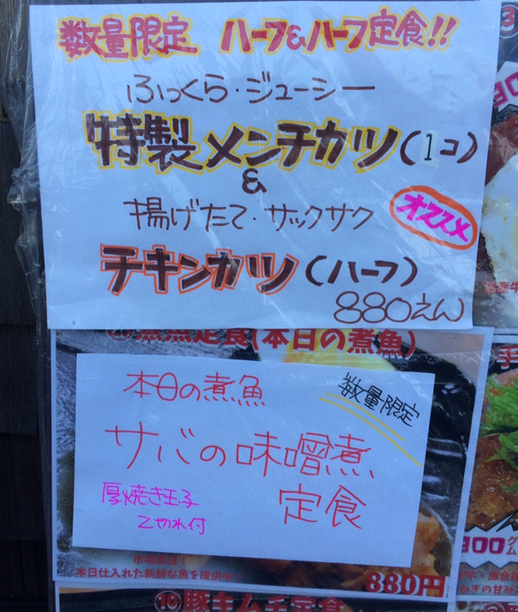 数量限定 ハーフ&ハーフ定食!!
ふっくら・ジューシー
特製メンチカツ(1コ)
&
揚げたて・サックサク
オススメ
チキンカツ(ハーフ)
880えん
煮魚定食(本日の煮魚)
本日の煮魚
数量限定
サバの味噌煮
定食
厚焼き玉子
2切れ付
市場直送!
本日仕入れた新鮮な魚を提供
880円
⑩豚キムチ定食